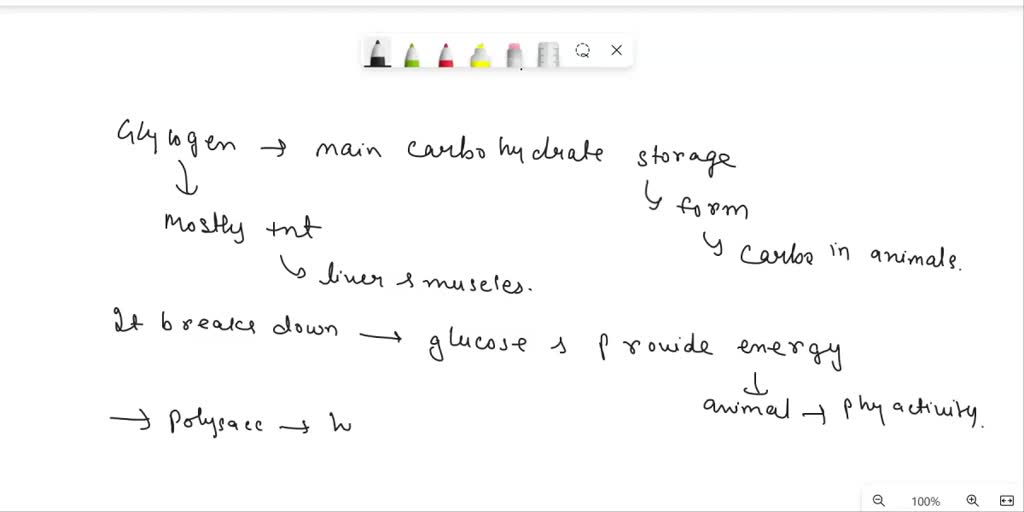 Glycogen → main carbohydrate storage
↓ ↳ form
Mostly tnt ↳ Carbs in animals.
↳ liver & muscles.
It breaks down → glucose & provide energy
↓
animal → phy activity.
→ Polysacc →
100%